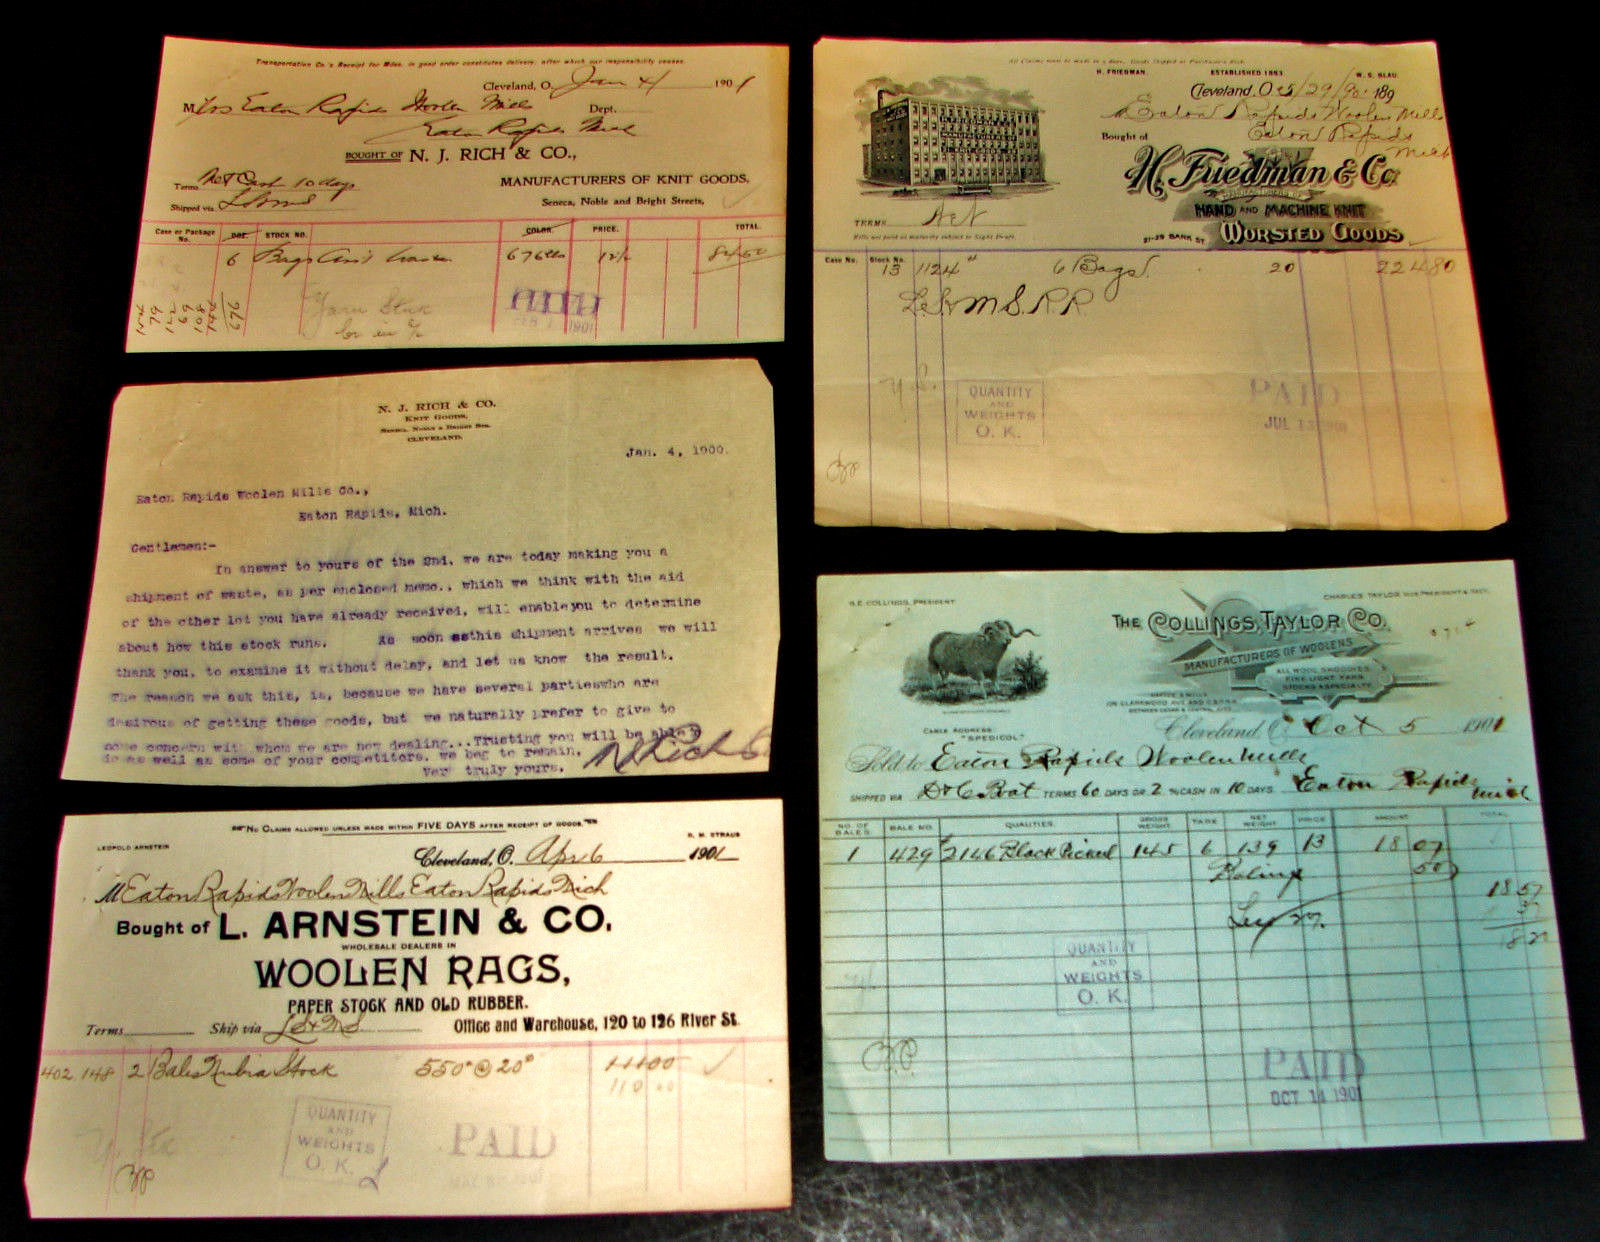 Transportation Co.'s Receipt for Mdse. in good order constitutes delivery, after which our responsibility ceases.
Cleveland, O. Jan 4 1901
M Eaton Rapids Woolen Mills Dept.
Eaton Rapids Mich
BOUGHT OF N. J. RICH & CO.,
Terms Net Cash 10 days
MANUFACTURERS OF KNIT GOODS,
Shipped via
Seneca, Noble and Bright Streets,
Case or Package No. DOZ. STOCK NO. COLOR. PRICE. TOTAL.
6 Bags 676 lbs 12½ 84.50
154
79
122
69
108
144
676
Yarn Stock
PAID
FEB 1901
N. J. RICH & CO.
KNIT GOODS,
SENECA, NOBLE & BRIGHT STS.
CLEVELAND.
Jan. 4, 1900.
Eaton Rapids Woolen Mills Co.,
Eaton Rapids, Mich.
Gentlemen:-
In answer to yours of the 2nd, we are today making you a
shipment of waste, as per enclosed memo., which we think with the aid
of the other lot you have already received, will enableyou to determine
about how this stock runs. As soon asthis shipment arrives we will
thank you, to examine it without delay, and let us know the result.
The reason we ask this, is, because we have several partieswho are
desirous of getting these goods, but we naturally prefer to give to
some concern with whom we are now dealing...Trusting you will be able
to as well as some of your competitors, we beg to remain,
Very truly yours,
N J Rich & Co
"No CLAIMS ALLOWED UNLESS MADE WITHIN FIVE DAYS AFTER RECEIPT OF GOODS."
LEOPOLD ARNSTEIN
S. M. STRAUS
Cleveland, O. Apr 6 1901
M Eaton Rapids Woolen Mills Eaton Rapids Mich
Bought of L. ARNSTEIN & CO.
WHOLESALE DEALERS IN
WOOLEN RAGS,
PAPER STOCK AND OLD RUBBER.
Terms Ship via LS & MS Office and Warehouse, 120 to 126 River St.
402 148 2 Bales Nubia Stock 550# @ 20¢ 11000
110 00
QUANTITY
AND
WEIGHTS
O. K.
PAID
H. FRIEDMAN. ESTABLISHED 1883 W. S. BLAU.
Cleveland, O. 189
M Eaton Rapids Woolen Mills
Bought of Eaton Rapids
Mich
H. Friedman & Co
MANUFACTURERS OF
HAND AND MACHINE KNIT
WORSTED GOODS
21-29 BANK ST.
TERMS
Case No. Stock No.
13 1124# 6 Bags 20 224 80
L S & M S. R R
QUANTITY
AND
WEIGHTS
O. K.
PAID
JUL 13
CHARLES TAYLOR VICE PRESIDENT & SECY.
G.E. COLLINGS, PRESIDENT
THE COLLINGS, TAYLOR CO.
MANUFACTURERS OF WOOLENS
ALL WOOL SHODDIES
FINE LIGHT YARN
STOCKS A SPECIALTY
OFFICE & MILLS
BETWEEN CEDAR & CENTRAL AVES
CABLE ADDRESS
"SPEDICOL"
Cleveland, O. Oct 5 1901
Sold to Eaton Rapids Woolen Mills
SHIPPED VIA D & C Boat TERMS 60 DAYS OR 2 % CASH IN 10 DAYS Eaton Rapids
Mich
NO. OF BALES BALE NO. QUALITIES. GROSS WEIGHT TARE NET WEIGHT PRICE AMOUNT TOTAL
1 429 2146 Black Picked 145 6 139 13 18 07
Baling 50
18 57
QUANTITY
AND
WEIGHTS
O. K.
PAID
OCT 14 1901